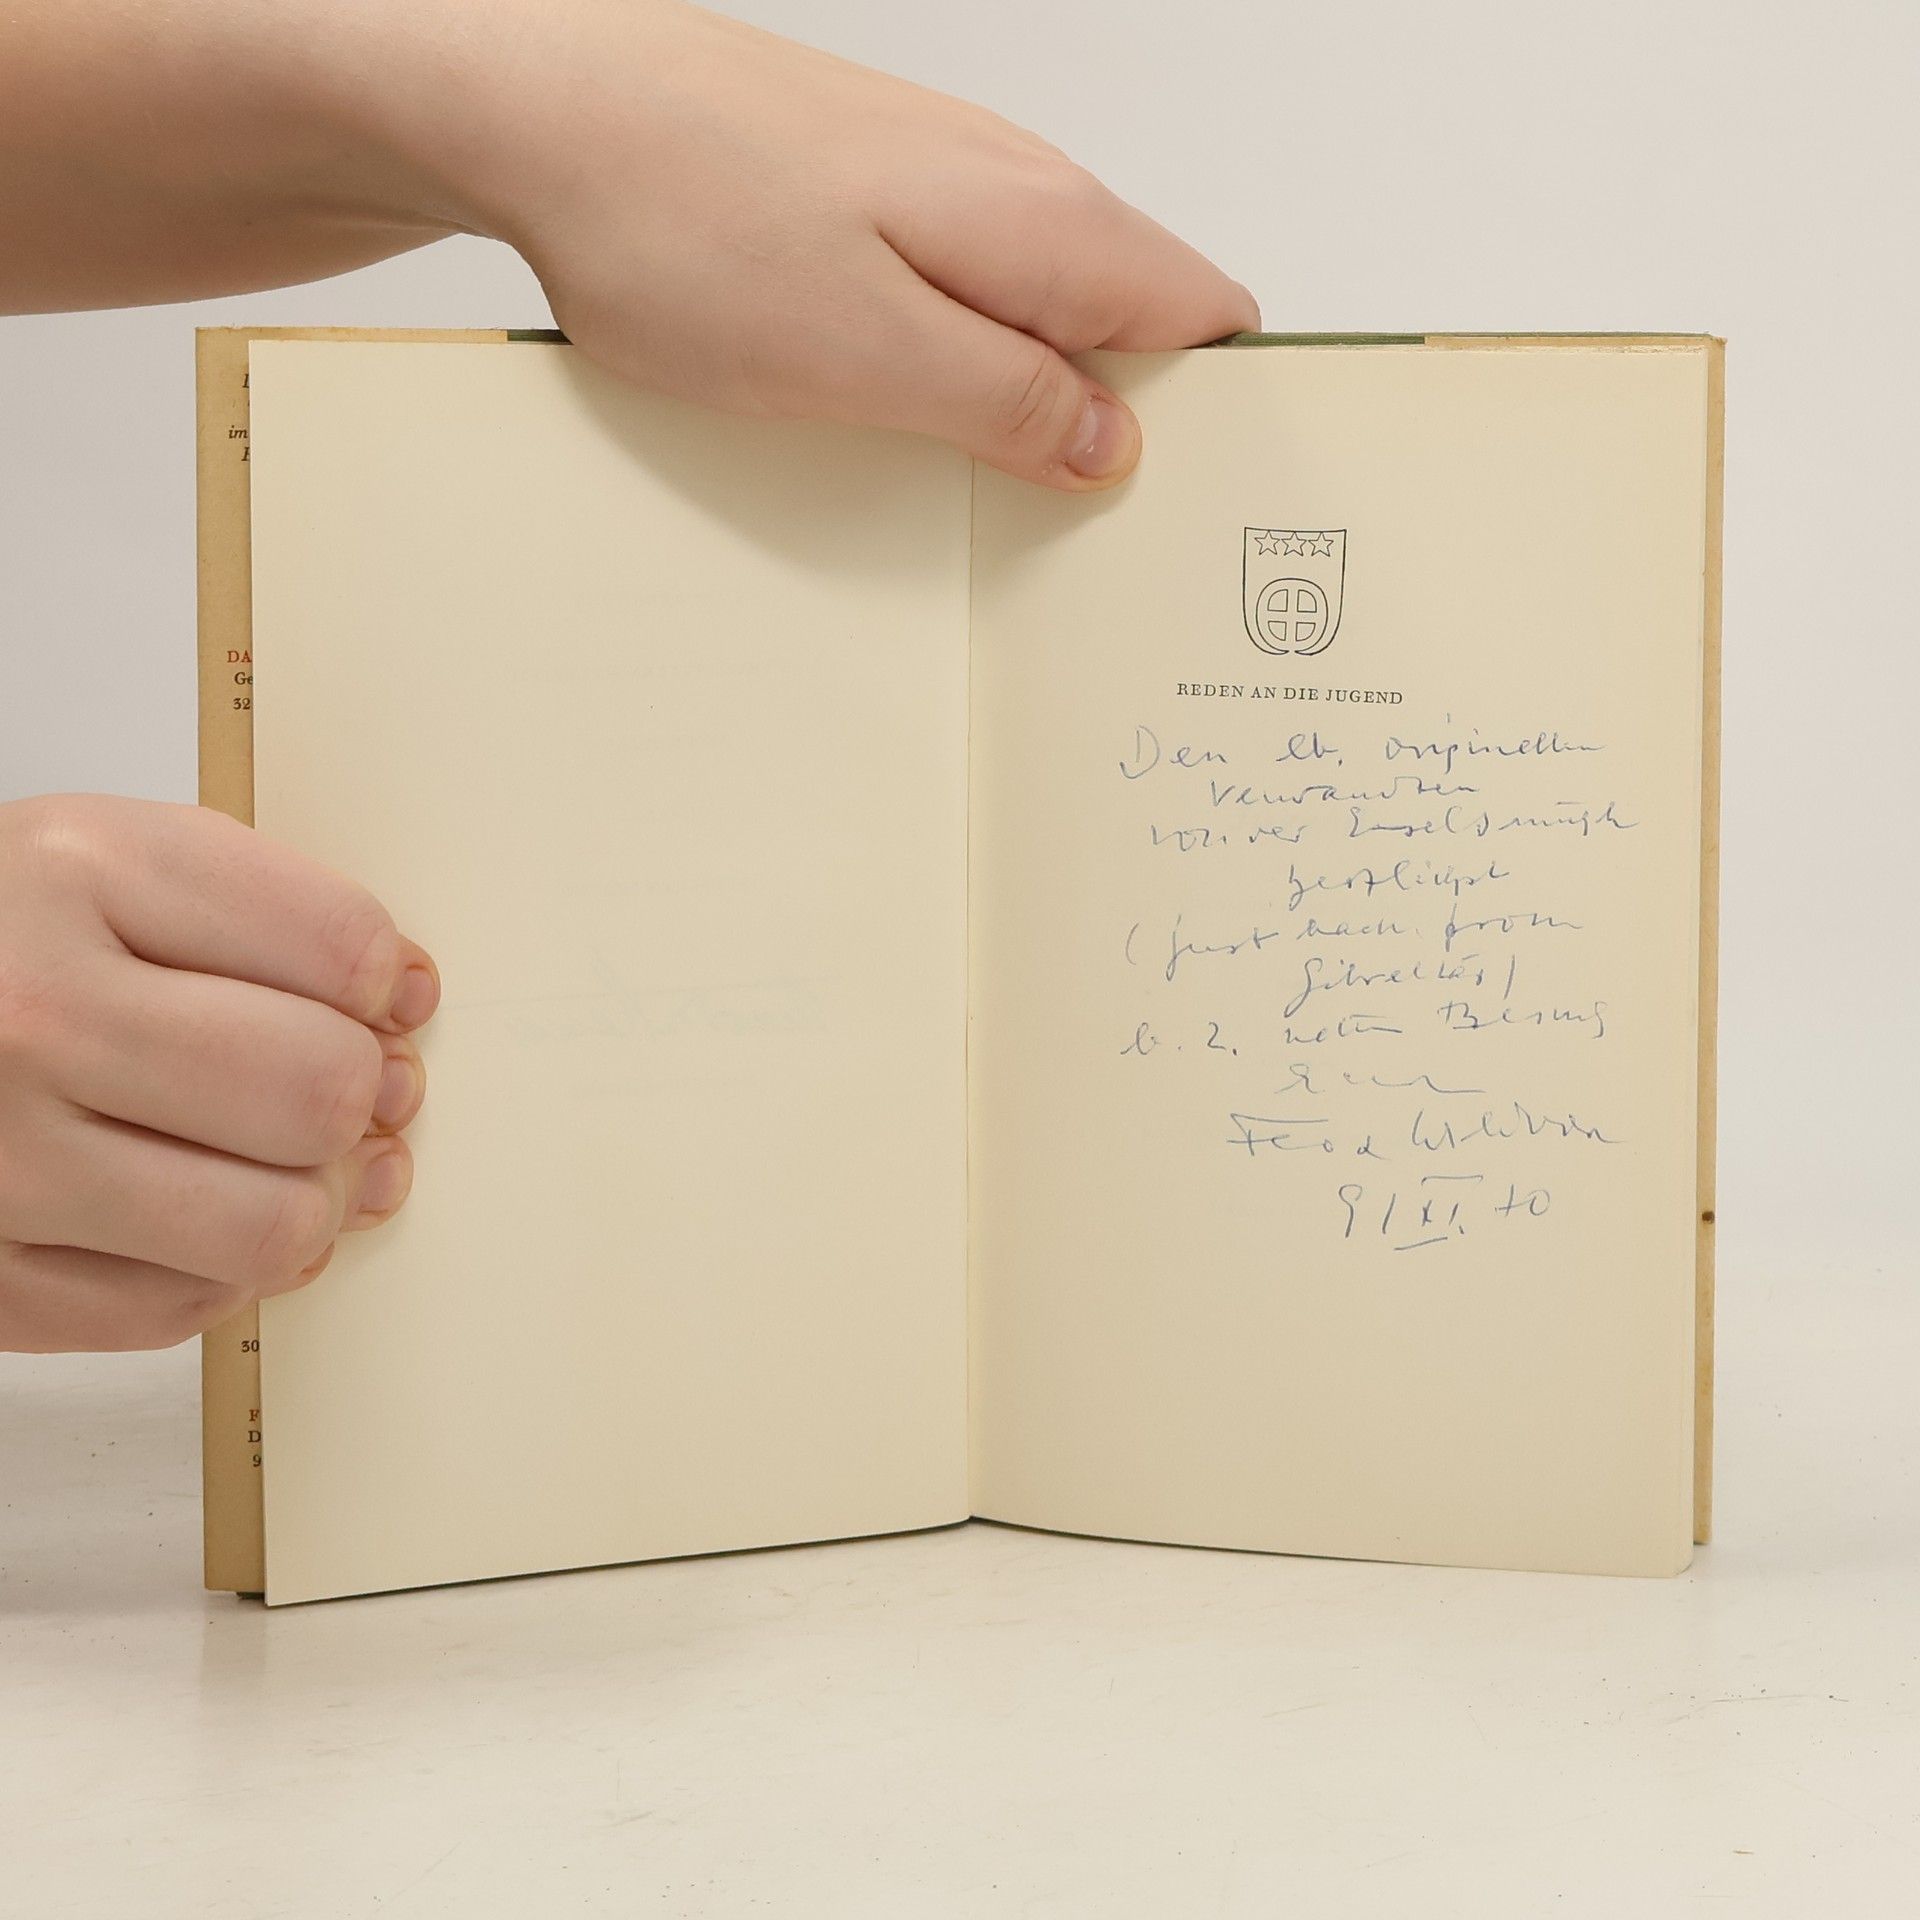 im
DA
Ge
32
30
F
D
9
REDEN AN DIE JUGEND
Den lb. originellen
Verwandten
von der
herzlichst
(just back from
Gibraltar)
b. 2. netten Besuch
Euer
9/XI. 70